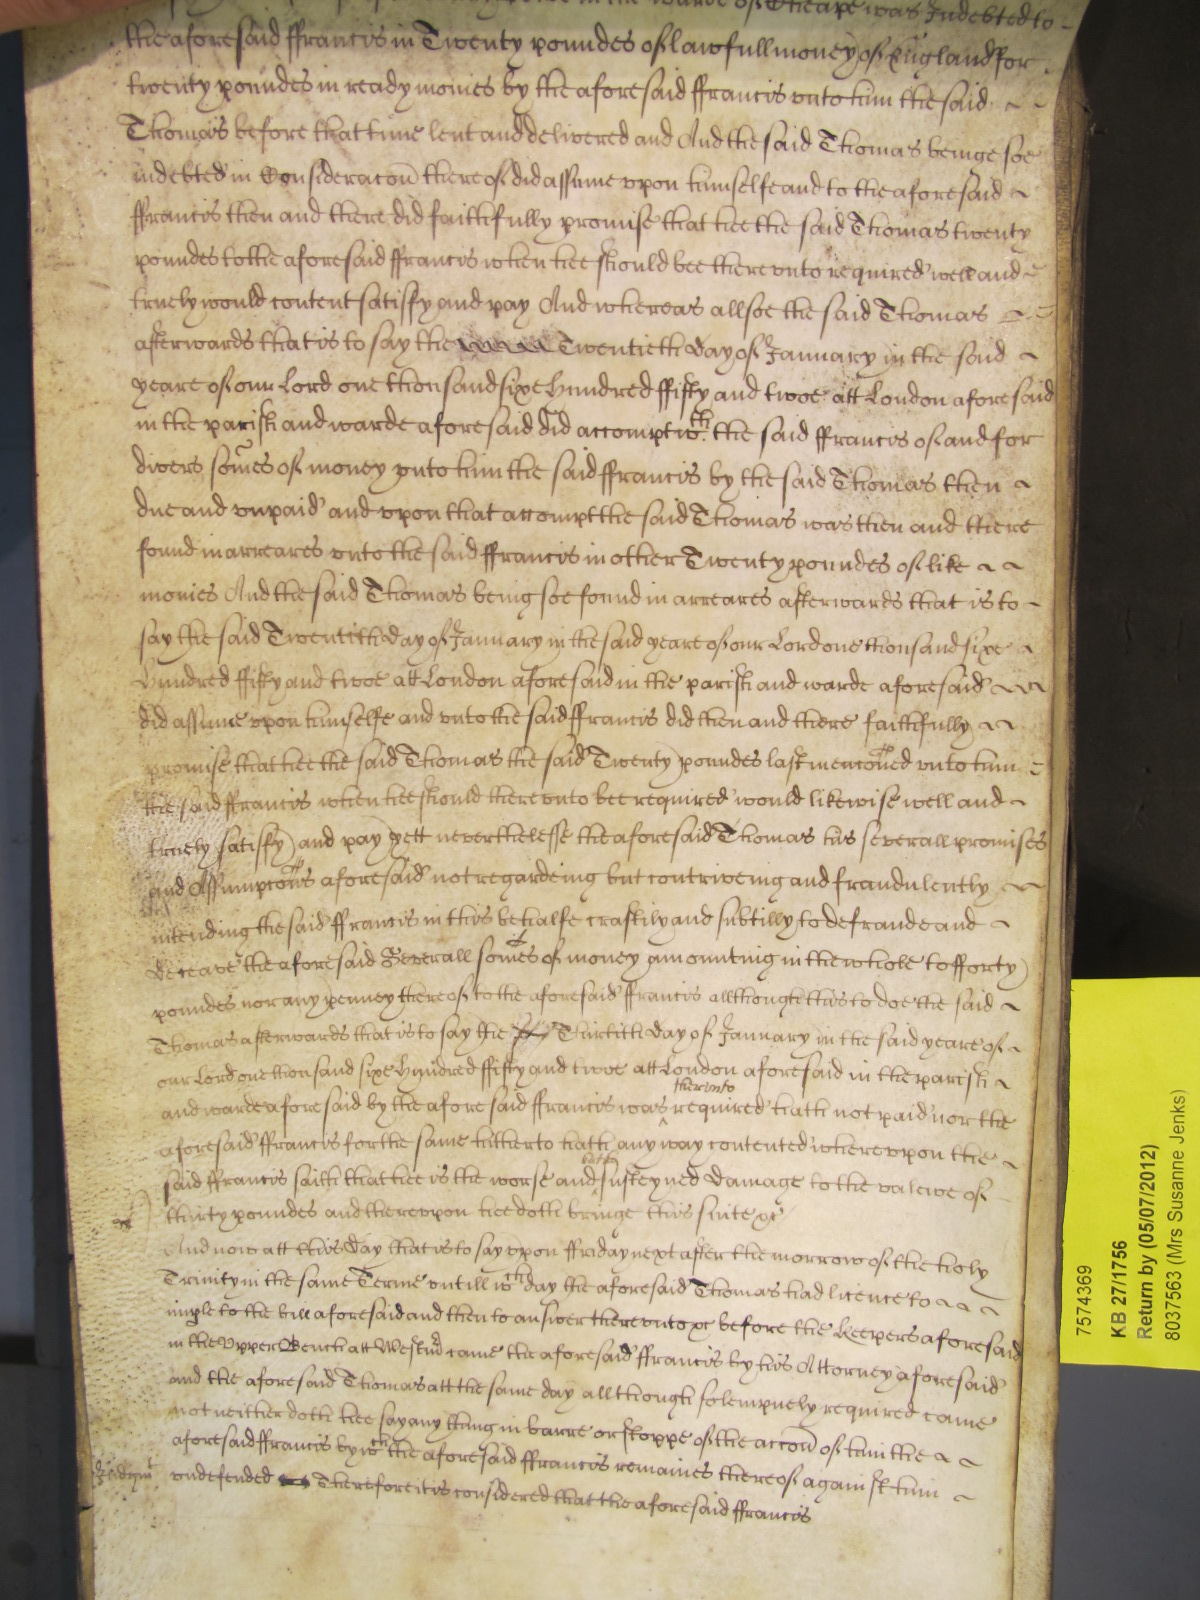 in the warde of Cheape was Indebted to
the aforesaid ffrancis in Twenty poundes of lawfull money of England for
twenty poundes in ready monies by the aforesaid ffrancis vnto him the said
Thomas before that time lent and delivered and And the said Thomas beinge soe
indebted in Consideracon thereof did assume vpon himselfe and to the aforesaid
ffrancis then and there did faithfully promise that hee the said Thomas twenty
poundes to the aforesaid ffrancis when hee should bee therevnto required well and
truely would content satisfy and pay And whereas allsoe the said Thomas
afterwards that is to say the Twentieth day of January in the said
yeare of our Lord one thousand sixe Hundred ffifty and twoe att London aforesaid
in the parish and warde aforesaid did accompt wth. the said ffrancis of and for
divers somes of money vnto him the said ffrancis by the said Thomas then
due and vnpaid and vpon that accompt the said Thomas was then and there
found in arreares vnto the said ffrancis in other Twenty poundes of like
monies And the said Thomas being soe found in arreares afterwards that is to
say the said Twentith day of January in the said yeare of our Lord one thousand sixe
Hundred ffifty and twoe att London aforesaid in the parish and warde aforesaid
did assume vpon himselfe and vnto the said ffrancis did then and there faithfully
promise that hee the said Thomas the said Twenty poundes last menconed vnto him
the said ffrancis when hee should therevnto bee required would likewise well and
truely satisfy and pay yett neverthelesse the aforesaid Thomas his severall promises
and Assumpcons aforesaid not regardeing but contriveing and fraudulently
intending the said ffrancis in this behalfe craftily and subtilly to defraude and
deceave the aforesaid Severall somes of money amounting in the whole to fforty
poundes nor any penney thereof to the aforesaid ffrancis allthough this to doe the said
Thomas afterwards that is to say the Thirtith day of January in the said yeare of
our Lord one thousand sixe Hundred ffifty and twoe att London aforesaid in the parish
and warde aforesaid by the aforesaid ffrancis was therevnto required hath not paid nor the
aforesaid ffrancis for the same hitherto hath any way contented wherevpon the
said ffrancis saith that hee is the worse and hath susteyned damage to the valewe of
thirty poundes and therevpon hee doth bringe this suite &c
And now att this day that is to say vpon ffriday next after the morrow of the holy
Trinity in the same Terme vntill wch day the aforesaid Thomas had licence to
imple to the bill aforesaid and then to answer therevnto &c before the Keepers aforesaid
in the Vpper Bench att Westmr came the aforesaid ffrancis by his Attorney aforesaid
and the aforesaid Thomas att the same day allthough solempnely required came
not neither doth hee say any thing in barre or stoppe of the accon of him the
aforesaid ffrancis by wch the aforesaid ffrancis remaines thereof against him
Judgmt
vndefended Therefore it is considered that the aforesaid ffrancis
7574369
KB 27/1756
Return by (05/07/2012)
8037563 (Mrs Susanne Jenks)